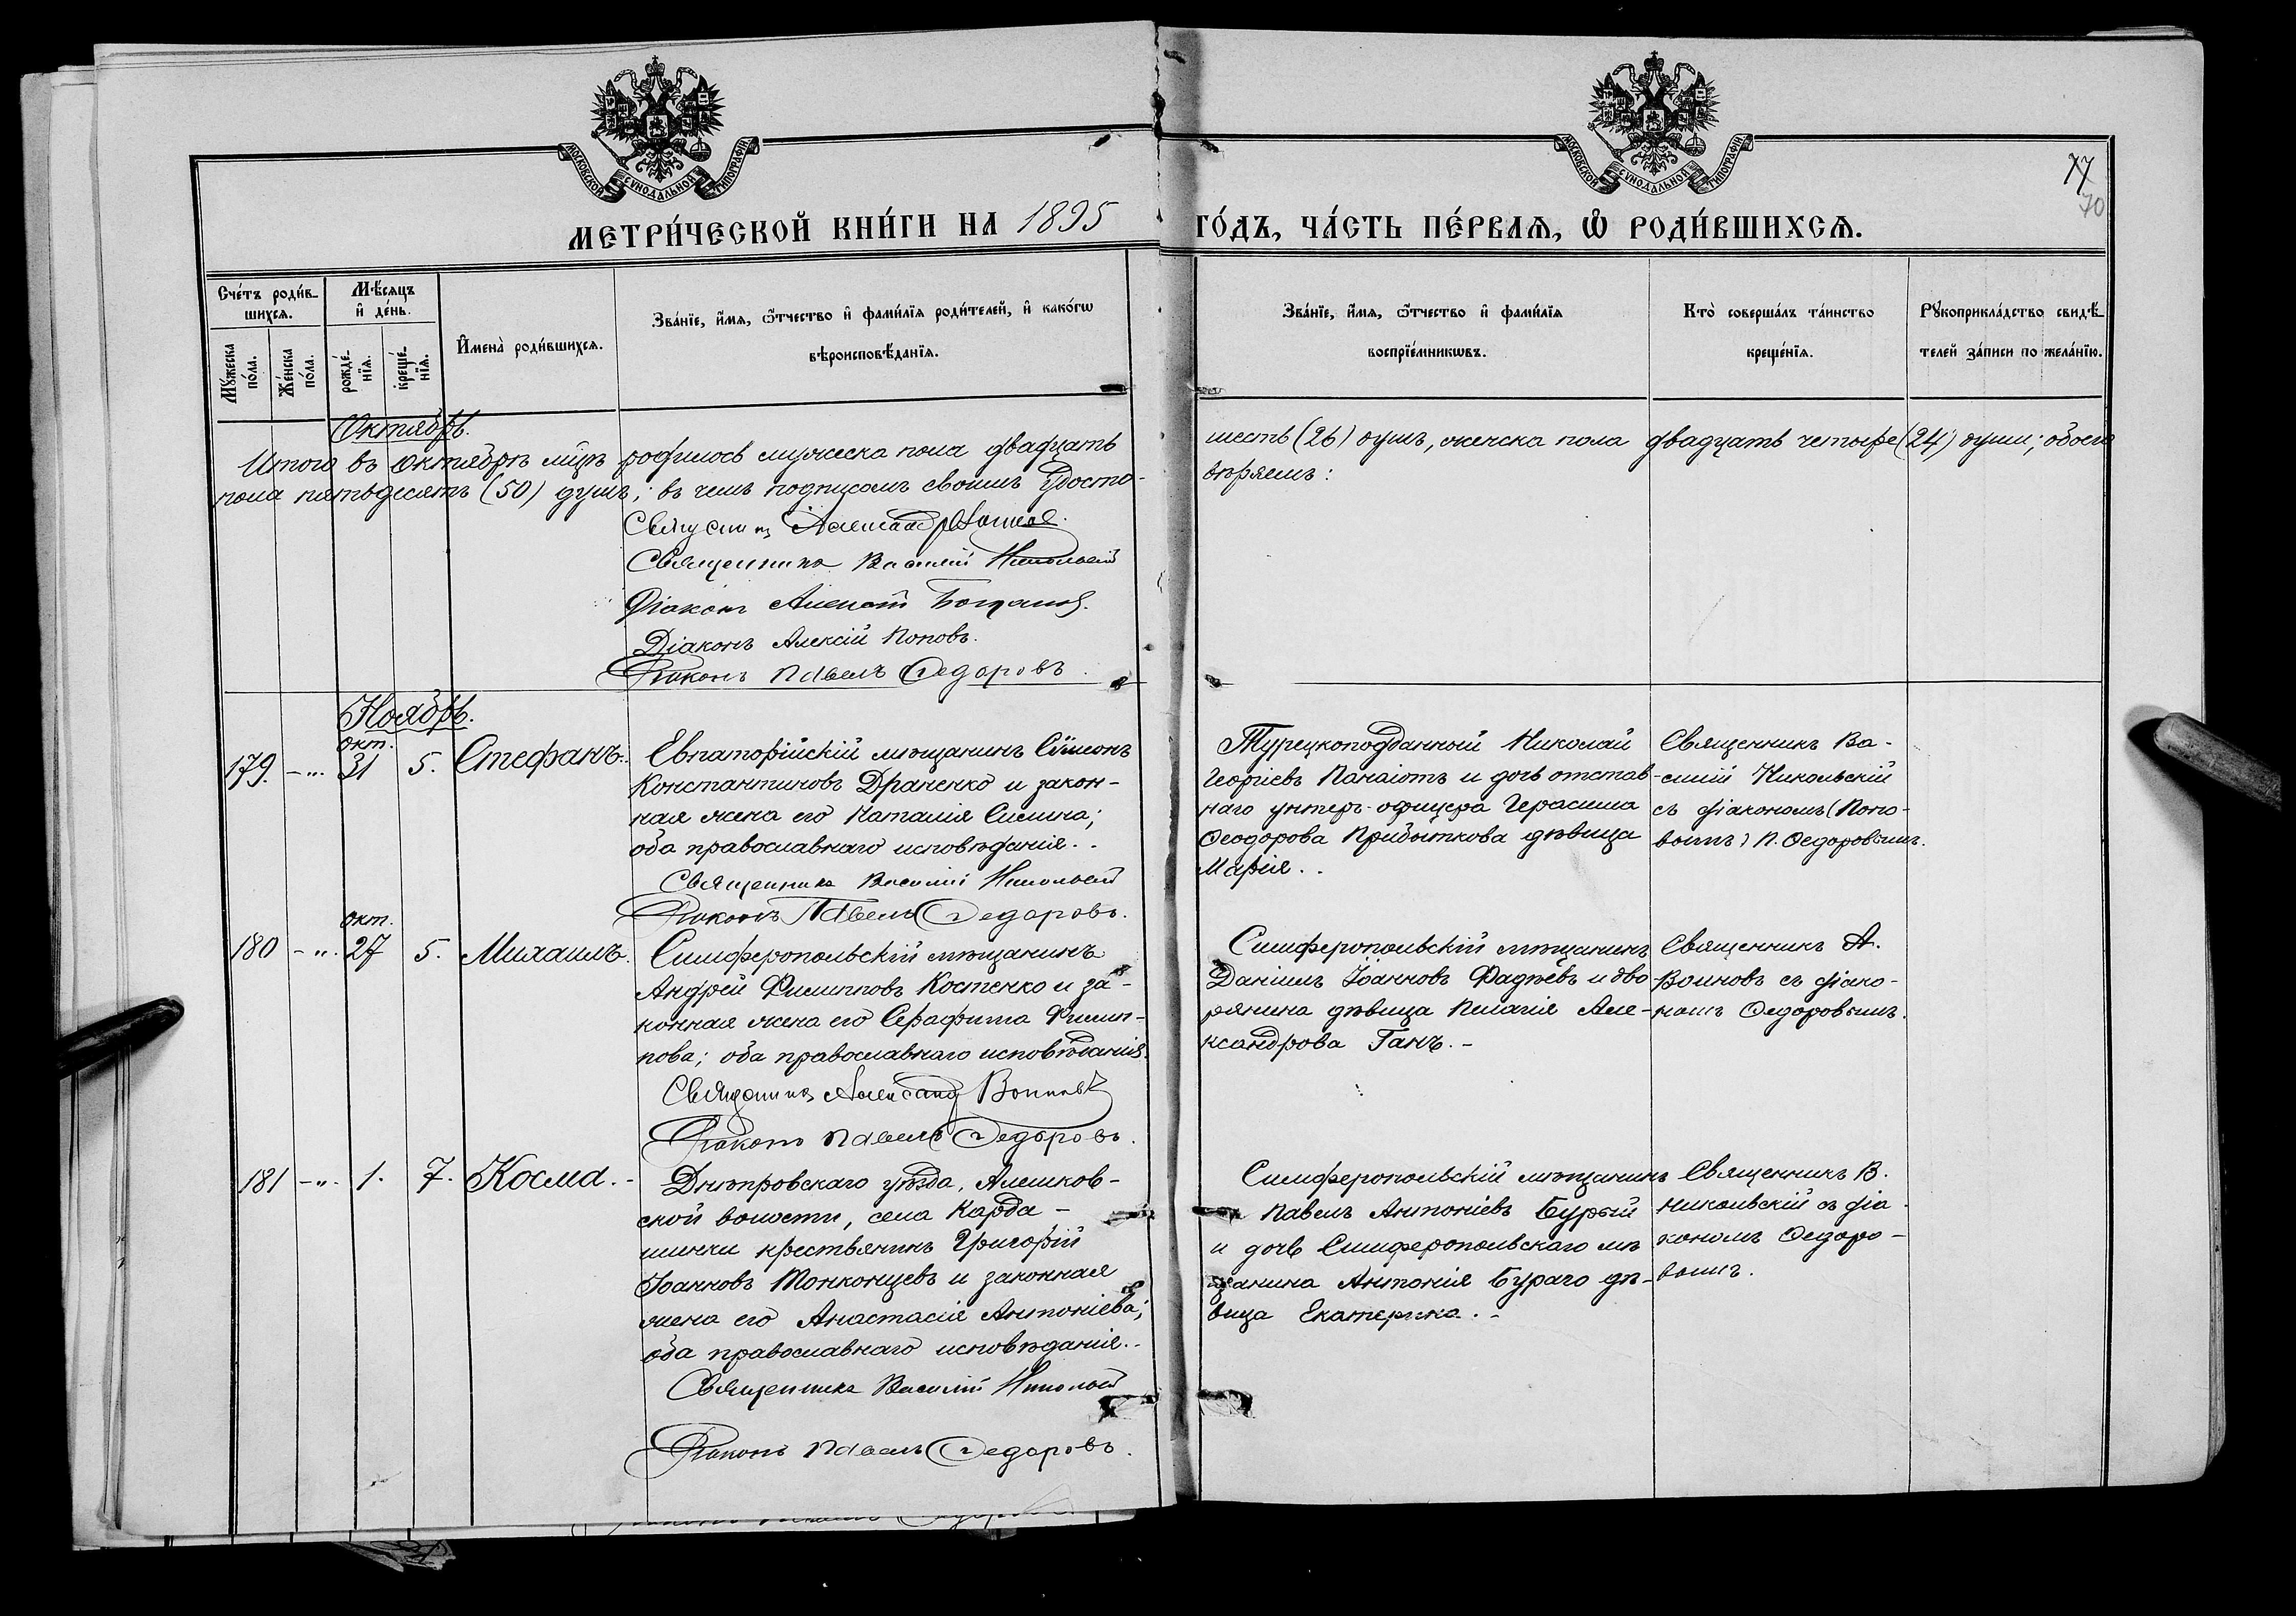 МОСКОВСКОЙ СѴНОДАЛЬНОЙ ТИПОГРАФІИ
МОСКОВСКОЙ СѴНОДАЛЬНОЙ ТИПОГРАФІИ
77
70
МЕТРИ́ЧЕСКОЙ КНИ́ГИ НА 1895 ГО́ДЪ, ЧА́СТЬ ПЕ́РВАѦ, Ѡ҆ РОДИ́ВШИХСѦ.
Сче́тъ роди́в-
шихсѧ.
Мꙋжеска
по́ла.
Же́нска
по́ла.
Мѣ́сѧцъ
и҆ де́нь.
рожде́-
нїѧ.
креще́-
нїѧ.
И҆мена̀ роди́вшихсѧ.
Зва́нїе, и҆́мѧ, ѻ҆́тчество и҆ фами́лїѧ роди́телей, и҆ како́гѡ
вѣроисповѣ́данїѧ.
Зва́нїе, и҆́мѧ, ѻ҆́тчество и҆ фами́лїѧ
воспрїе́мникѡвъ.
Кто̀ соверша́лъ та́инство
креще́нїѧ.
Рꙋкоприкла́дство свидѣ́-
телей за́писи по жела́нїю.
Октябрь.
Итого въ октябрѣ мцѣ родилось мужеска пола двадцать
пола пятьдесятъ (50) душъ; въ чемъ подписомъ своимъ удосто-
шесть (26) душъ, женска пола двадцать четыре (24) души; обоего
вѣряемъ:
Священникъ Александръ
Священникъ Василій Никольскій
Діаконъ Алексій
Діаконъ Алексій Поповъ.
Діаконъ Павелъ Ѳедоровъ.
Ноябрь.
179. -"- окт. 31 5. Стефанъ.
Евпаторійскій мѣщанинъ Сѵмеонъ
Константиновъ Драненко и закон-
ная жена его Наталія Силина;
оба православнаго исповѣданія.
Священникъ Василій Никольскій
Діаконъ Павелъ Ѳедоровъ.
Турецкоподданный Николай
Георгіевъ Панаіотъ и дочь отстав-
наго унтеръ-офицера Герасима
Ѳеодорова Прибыткова дѣвица
Марія.
Священникъ Ва-
силій Никольскій
съ діакономъ (Попо-
вымъ) П. Ѳедоровымъ.
180 -"- окт. 27 5. Михаилъ.
Симферопольскій мѣщанинъ
Андрей Филипповъ Костенко и за-
конная жена его Серафима Филип-
пова; оба православнаго исповѣданія.
Священникъ Александръ Воиновъ
Діаконъ Павелъ Ѳедоровъ.
Симферопольскій мѣщанинъ
Даніилъ Іоанновъ Фадѣевъ и дво-
рянина дѣвица Пелагія Але-
ксандрова Ганъ.
Священникъ А.
Воиновъ съ діако-
номъ Ѳедоровымъ.
181 -"- 1. 7. Косма.
Днѣпровскаго уѣзда, Алешков-
ской волости, села Карда-
шинки крестьянинъ Григорій
Іоанновъ Тонконцевъ и законная
жена его Анастасія Антоніева;
оба православнаго исповѣданія.
Священникъ Василій Никольскій
Діаконъ Павелъ Ѳедоровъ.
Симферопольскій мѣщанинъ
Павелъ Антоніевъ Бурый
и дочь Симферопольскаго мѣ
щанина Антонія Бураго дѣ-
вица Екатерина.
Священникъ В.
Никольскій съ діа
кономъ Ѳедоро-
вымъ.